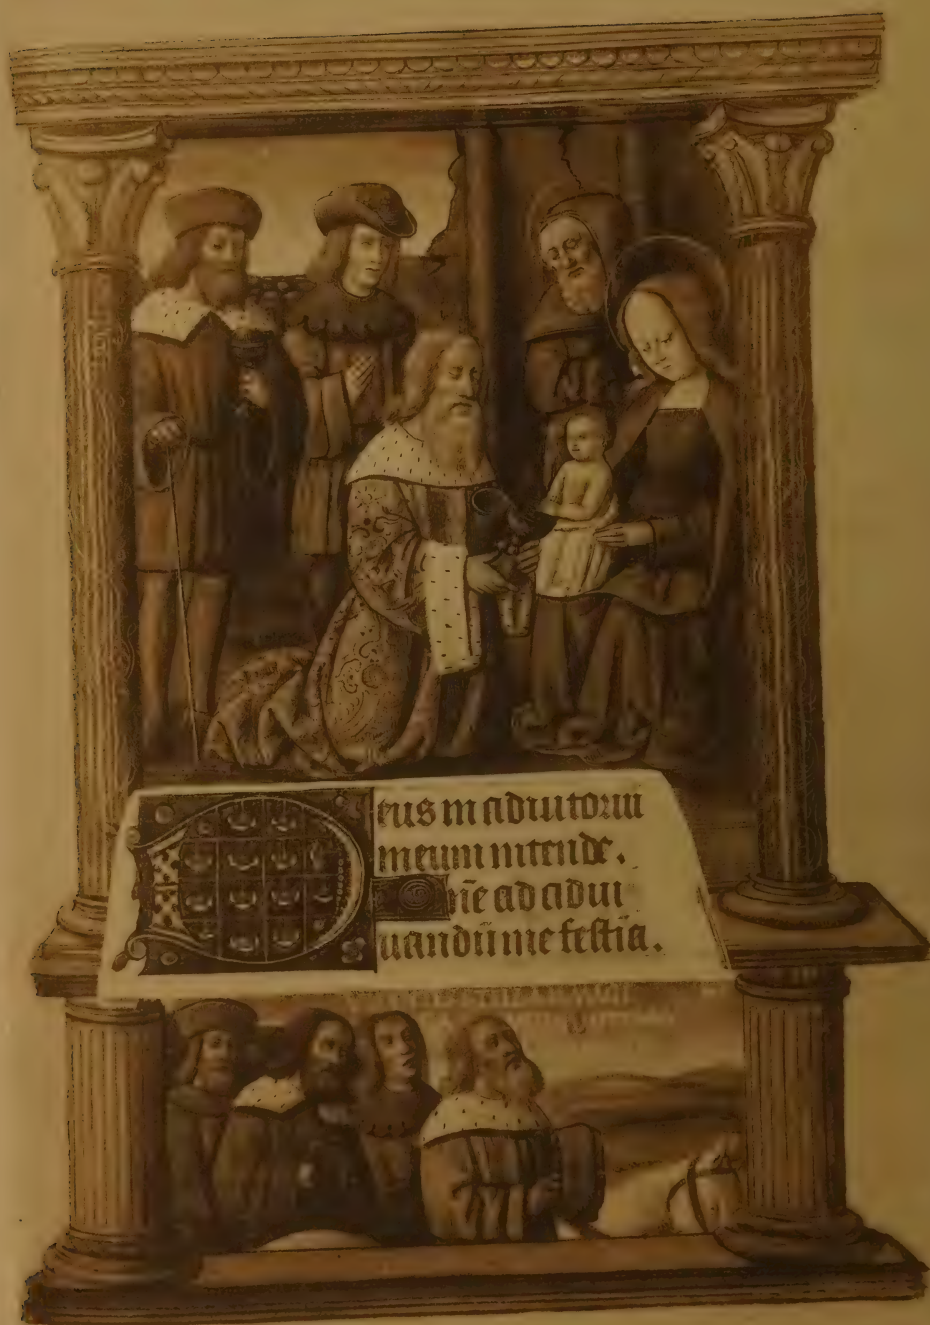 Deus in adiutoriū
meum intende.
Dn̄e ad adiui
uandū me festīa.